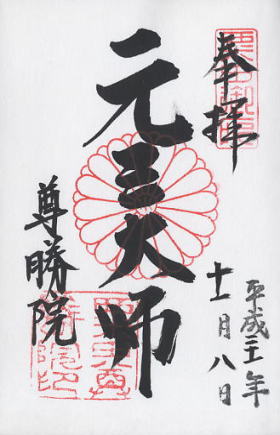 奉拝
平成二十一年
十一月八日
元三大師
尊勝院